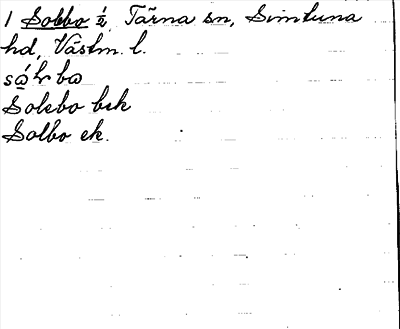 1 Solbo i Tärna sn, Simtuna
hd, Västm. l.
Solebo bek
Solbo ek.